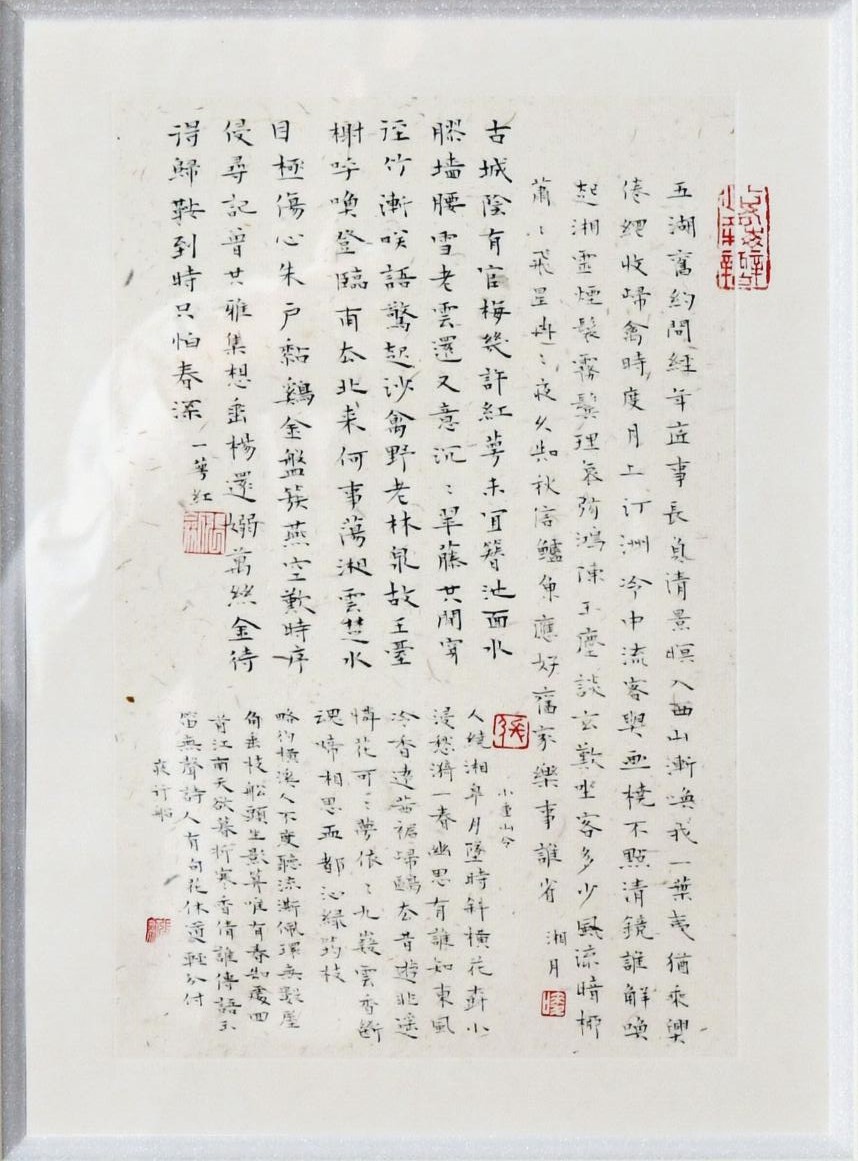 五湖舊約問經年底事長負清景暝入西山漸喚我一葉夷猶乘興
倦網收歸禽時度月上汀洲冷中流容與畫橈不點清鏡誰解喚
起湘靈煙鬟霧鬢理哀弦鴻陣玉麈談玄歎坐客多少風流暗柳
蕭〻飛星冉〻夜久知秋信鱸魚應好舊家樂事誰省 湘月
古城陰有官梅幾許紅萼未宜簪池面冰
膠墻腰雪老雲還又意沉〻翠藤共閒穿
徑竹漸咲語驚起沙禽野老林泉故王臺
榭呼喚登臨南去北來何事蕩湘雲楚水
目極傷心朱戶黏鷄金盤簇燕空歎時序
侵尋記曾共雅集想垂楊還嫋萬絲金待
得歸鞍到時只怕春深 一萼紅
小重山令
人繞湘皐月墜時斜橫花樹小
浸愁漪一春幽思有誰知東風
冷香遠茜裙歸鷗去昔遊非遙
憐花可〻夢依〻九嶷雲杳斷
魂啼相思血都沁綠筠枝
略彴橫溪人不度聽流澌佩環無數屋
角垂枝船頭生影算唯有春知處回
首江南天欲暮折寒香倩誰傳語玉
笛無聲詩人有句花休道輕分付
夜行船